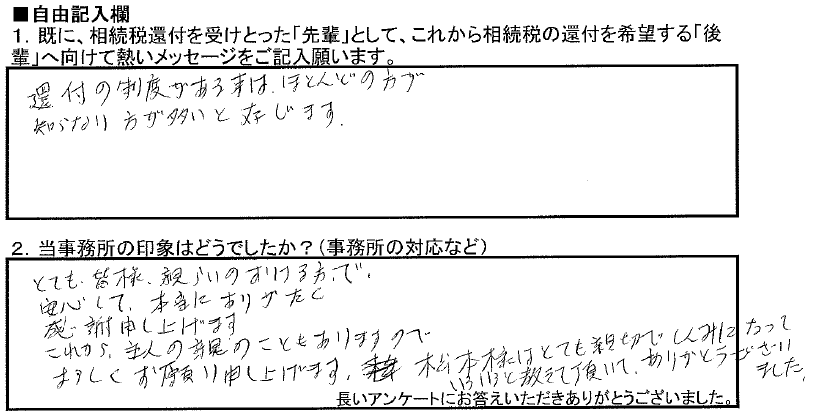 ■自由記入欄
1．既に、相続税還付を受けとった「先輩」として、これから相続税の還付を希望する「後
輩」へ向けて熱いメッセージをご記入願います。
還付の制度がある事は、ほとんどの方が
知らない方が多いと存じます。
2．当事務所の印象はどうでしたか？（事務所の対応など）
とても皆様、親らいのおける方で、
安心して、本当にありがたく
感謝申し上げます
これから、主人の実親のこともありますので
よろしくお願い申し上げます。
松本様はとても親切でしんみになって
いろいろと教えて頂いて、ありがとうござい
ました。
長いアンケートにお答えいただきありがとうございました。